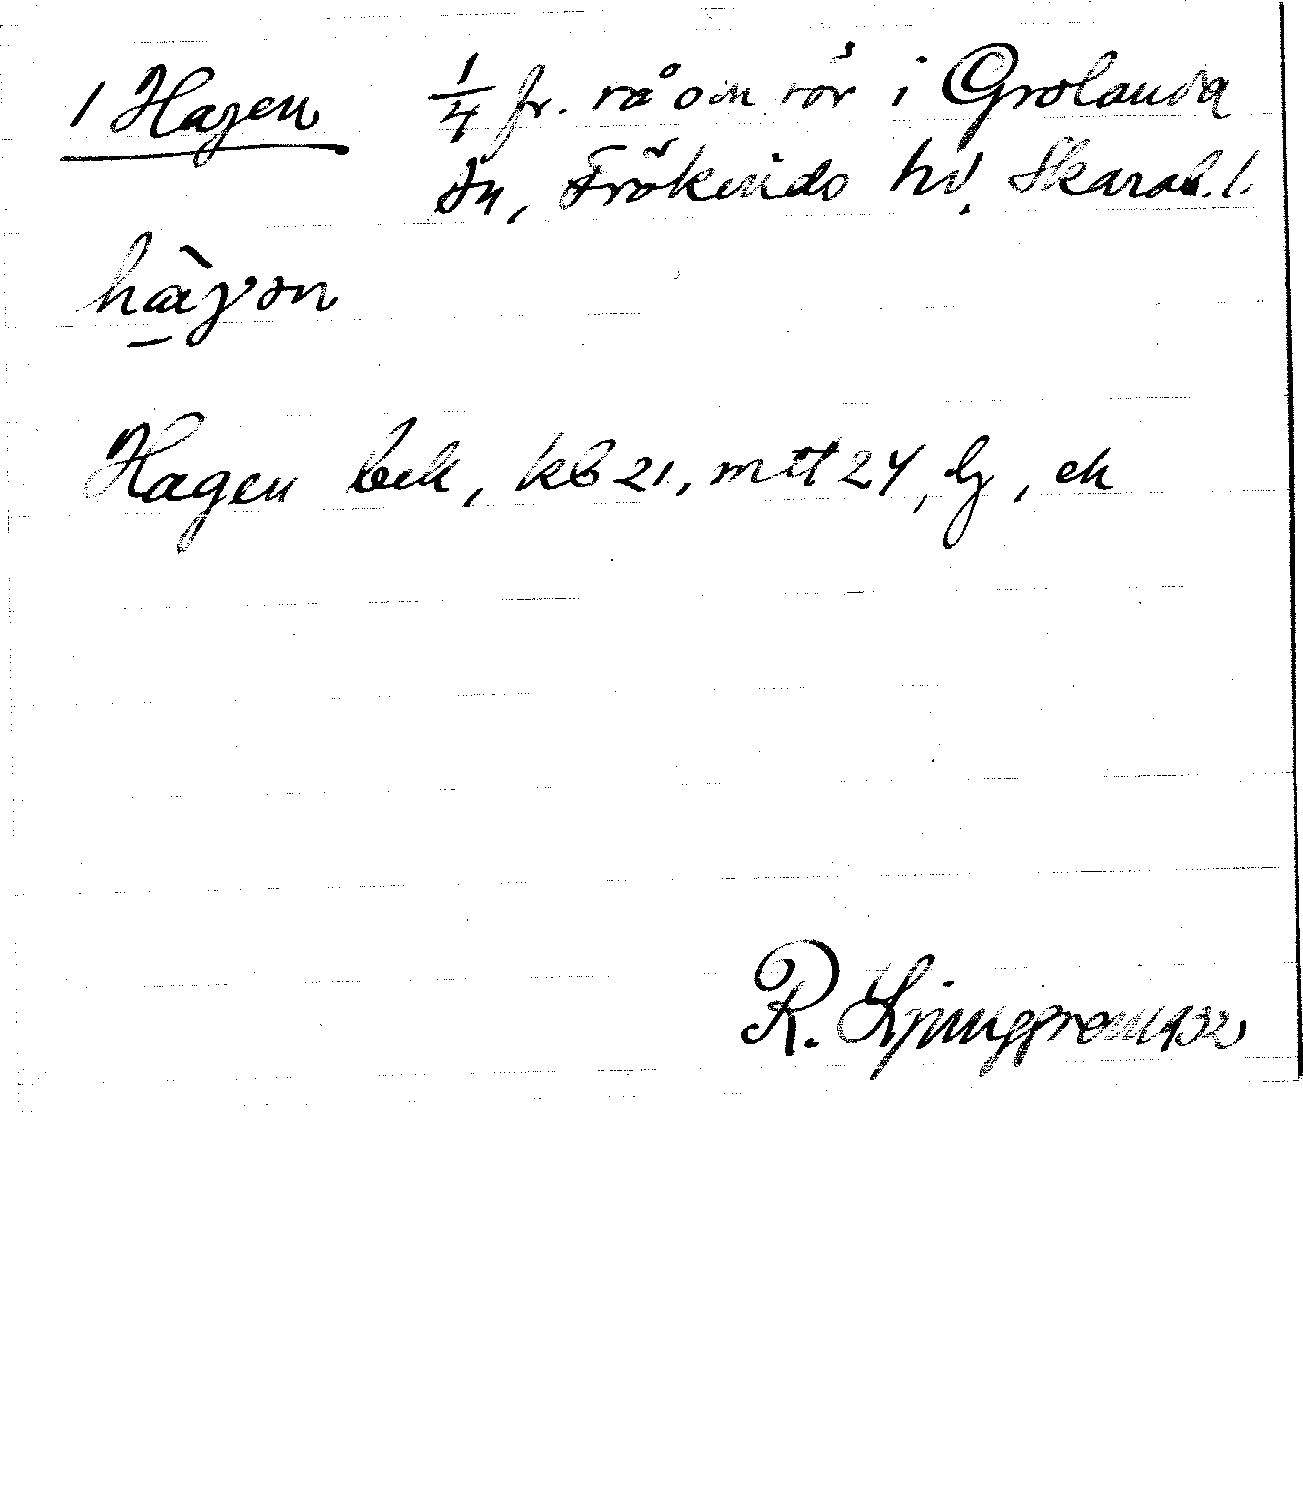 1 Hagen 1/4 fr. rå o in rör i Grolanda
sn, Frökinds hd, Skarab. l.
hàgɘn
Hagen bek, kb 21, mtt 24, lj, ek
R. Ljunggren 1932